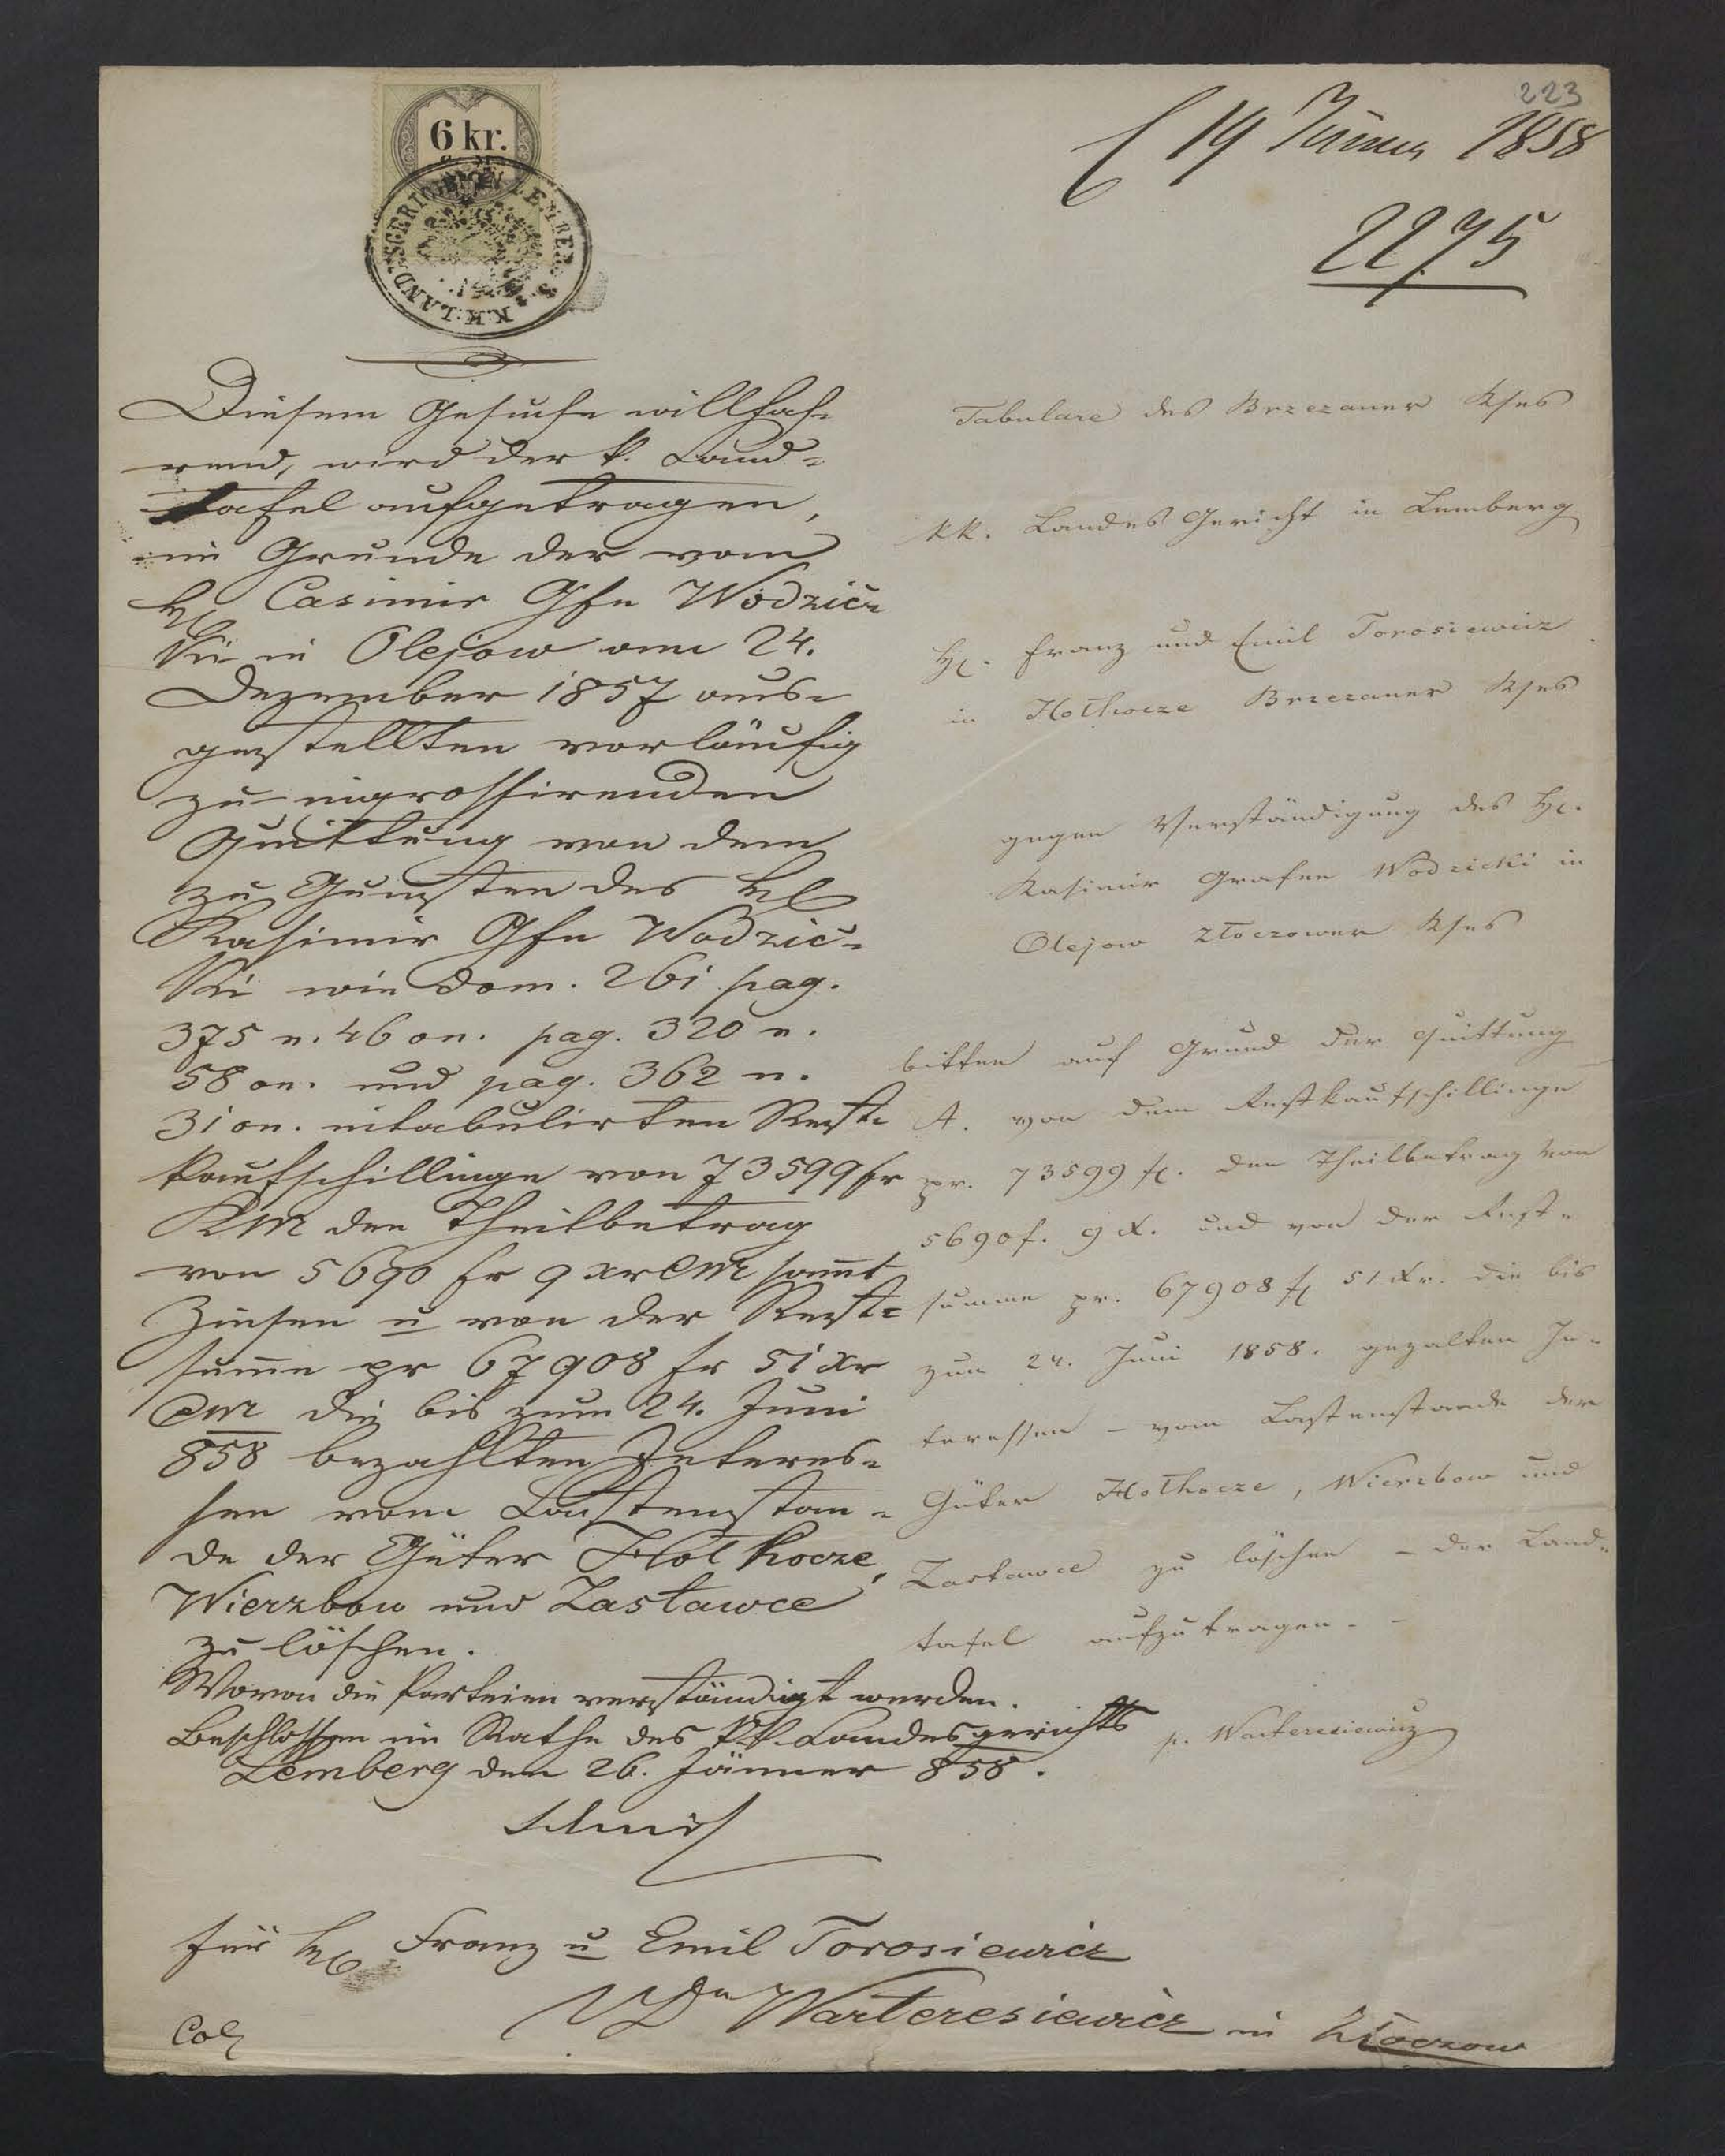 223
19 Jänner 1858
2275
6 kr.
K.K. LANDESGERICHT IN LEMBERG
Diesem Gesuche willfah-
rend, wird der k. Land-
tafel aufgetragen,
im Grunde der vom
H Casimir Gfn Wodzic-
ki in Olejow am 24.
Dezember 1857 aus-
gestellten vorläufig
zu ingrossirenden
Quittung von dem
zu Gunsten des H
Kasimir Gfn Wodzic-
ki wie dom. 261 pag.
375 n. 46 on. pag. 320 n.
58 on. und pag. 362 n.
31 on. intabulirten Rest-
kaufschillinge von 73599 fr
KM den Theilbetrag
von 5690 fr 9 xr CM samt
Zinsen u von der Rest-
summe pr 67908 fr 51 xr
CM die bis zum 24. Juni
858 bezahlten Interes-
sen vom Lastenstan-
de der Güter Hołhocze,
Wierzbow und Zastawce
zu löschen.
Wovon die Parteien verständigt werden.
Beschlossen im Rathe des k.k. Landesgerichts
Lemberg den 26. Jänner 858.
Für H Franz u Emil Torosiewicz
Warteresiewicz in Złoczow
Tabulare des Brzezaner Kses
kk. Landes Gericht in Lemberg
H. Franz und Emil Torosiewicz
in Hołhocze Brzezaner Kses
gegen Verständigung des H.
Kasimir Grafen Wodzicki in
Olejow Złoczower Kses
bitten auf Grund der Quittung
A. von dem Restkaufschillinge
pr. 73599 f. den Theilbetrag von
5690 f. 9 x. und von der Rest-
summe pr. 67908 f 51 xr. die bis
zum 24. Juni 1858. gezalten In-
teressen – vom Lastenstande der
Güter Hołhocze, Wierzbow und
Zastawce zu löschen – der Land-
tafel aufzutragen. –
p. Warteresiewicz